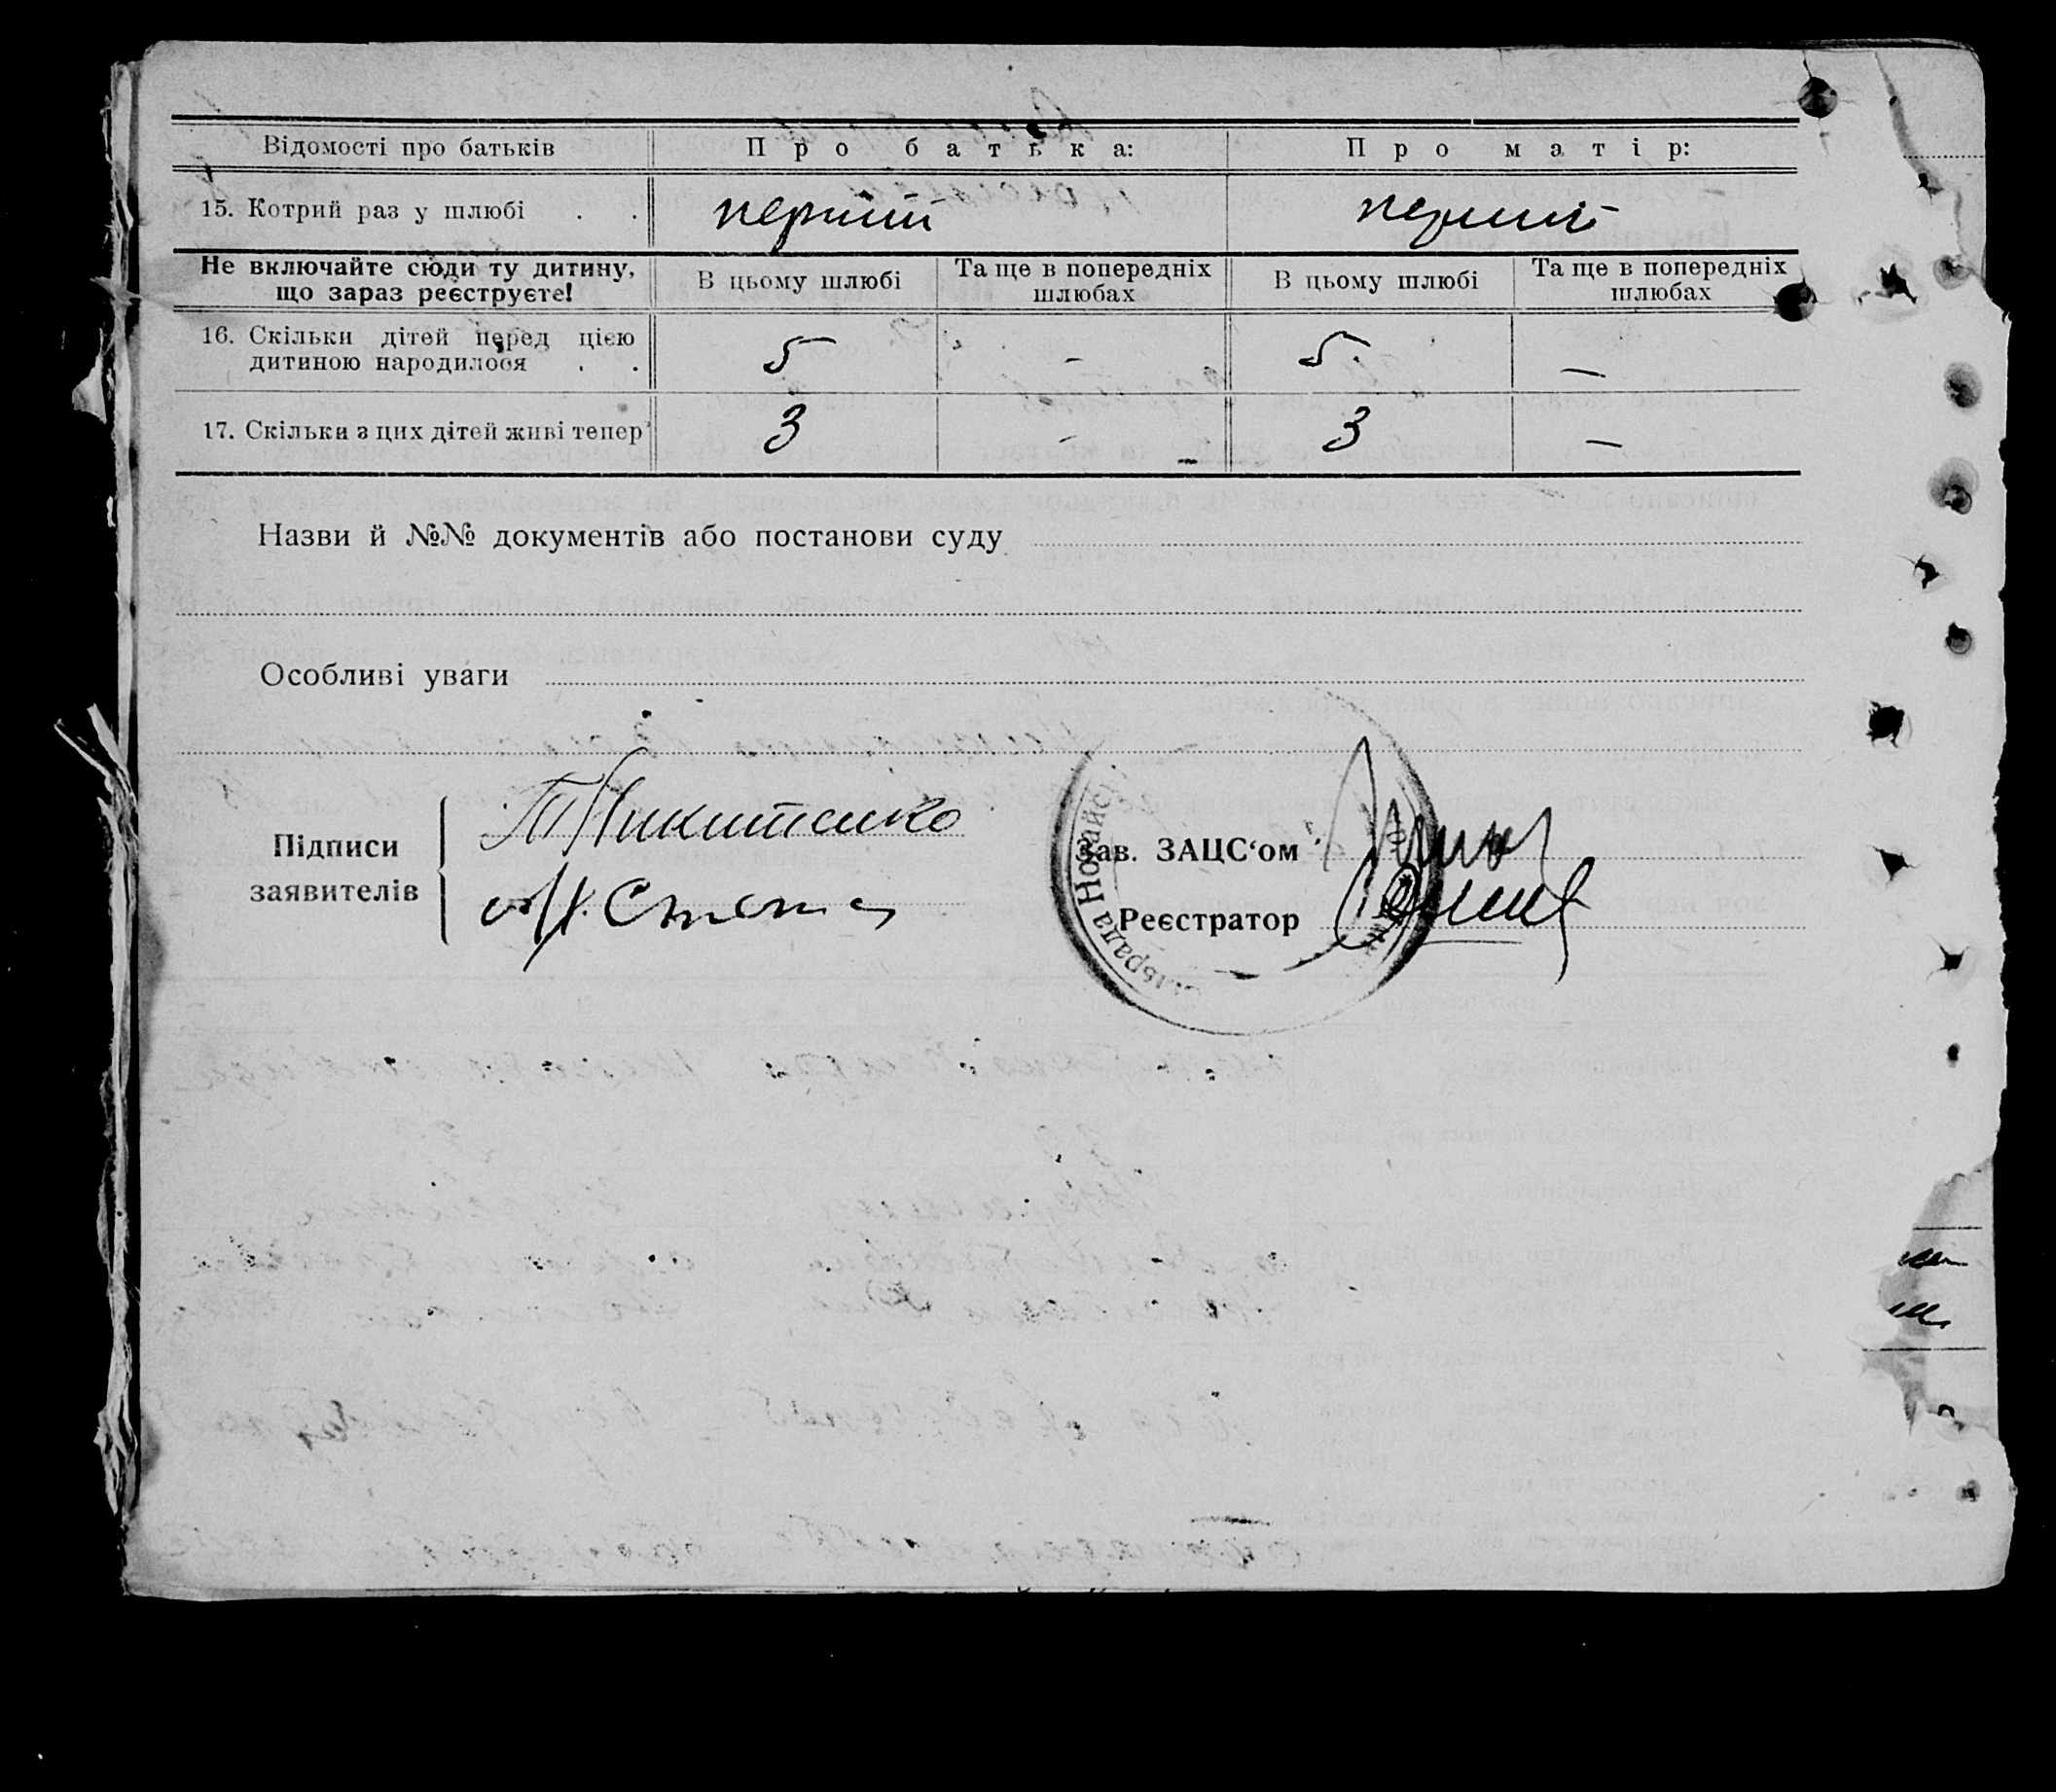 Відомості про батьків Про батька: Про матір:
15. Котрий раз у шлюбі . . перший перший
Не включайте сюди ту дитину, що зараз реєструєте! В цьому шлюбі Та ще в попередніх шлюбах В цьому шлюбі Та ще в попередніх шлюбах
16. Скільки дітей перед цією
дитиною народилося . . 5 - 5 —
17. Скільки з цих дітей живі тепер 3 - 3 —
Назви й №№ документів або постанови суду
Особливі уваги
Підписи
заявителів
Никитенко
Зав. ЗАЦС‘ом
Реєстратор